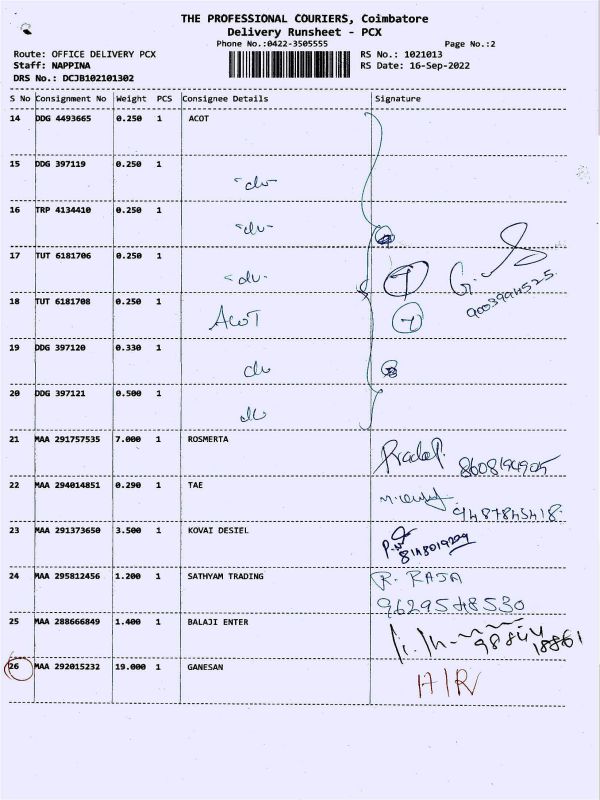 THE PROFESSIONAL COURIERS, Coimbatore
Delivery Runsheet - PCX
Phone No.:0422-3505555 Page No.:2
Route: OFFICE DELIVERY PCX RS No.: 1021013
Staff: NAPPINA RS Date: 16-Sep-2022
DRS No.: DCJB102101302
S No Consignment No Weight PCS Consignee Details Signature
14 DDG 4493665 0.250 1 ACOT
15 DDG 397119 0.250 1
-do-
16 TRP 4134410 0.250 1
-do-
17 TUT 6181706 0.250 1
-do-
9003994525
18 TUT 6181708 0.250 1
ACOT
7
19 DDG 397120 0.330 1
do
20 DDG 397121 0.500 1
do
21 MAA 291757535 7.000 1 ROSMERTA
Pradeep. 8608194905
22 MAA 294014851 0.290 1 TAE
9487845418.
23 MAA 291373650 3.500 1 KOVAI DESIEL
24 MAA 295812456 1.200 1 SATHYAM TRADING R. RAJA
9629548530
25 MAA 288666849 1.400 1 BALAJI ENTER
98844
18861
26 MAA 292015232 19.000 1 GANESAN